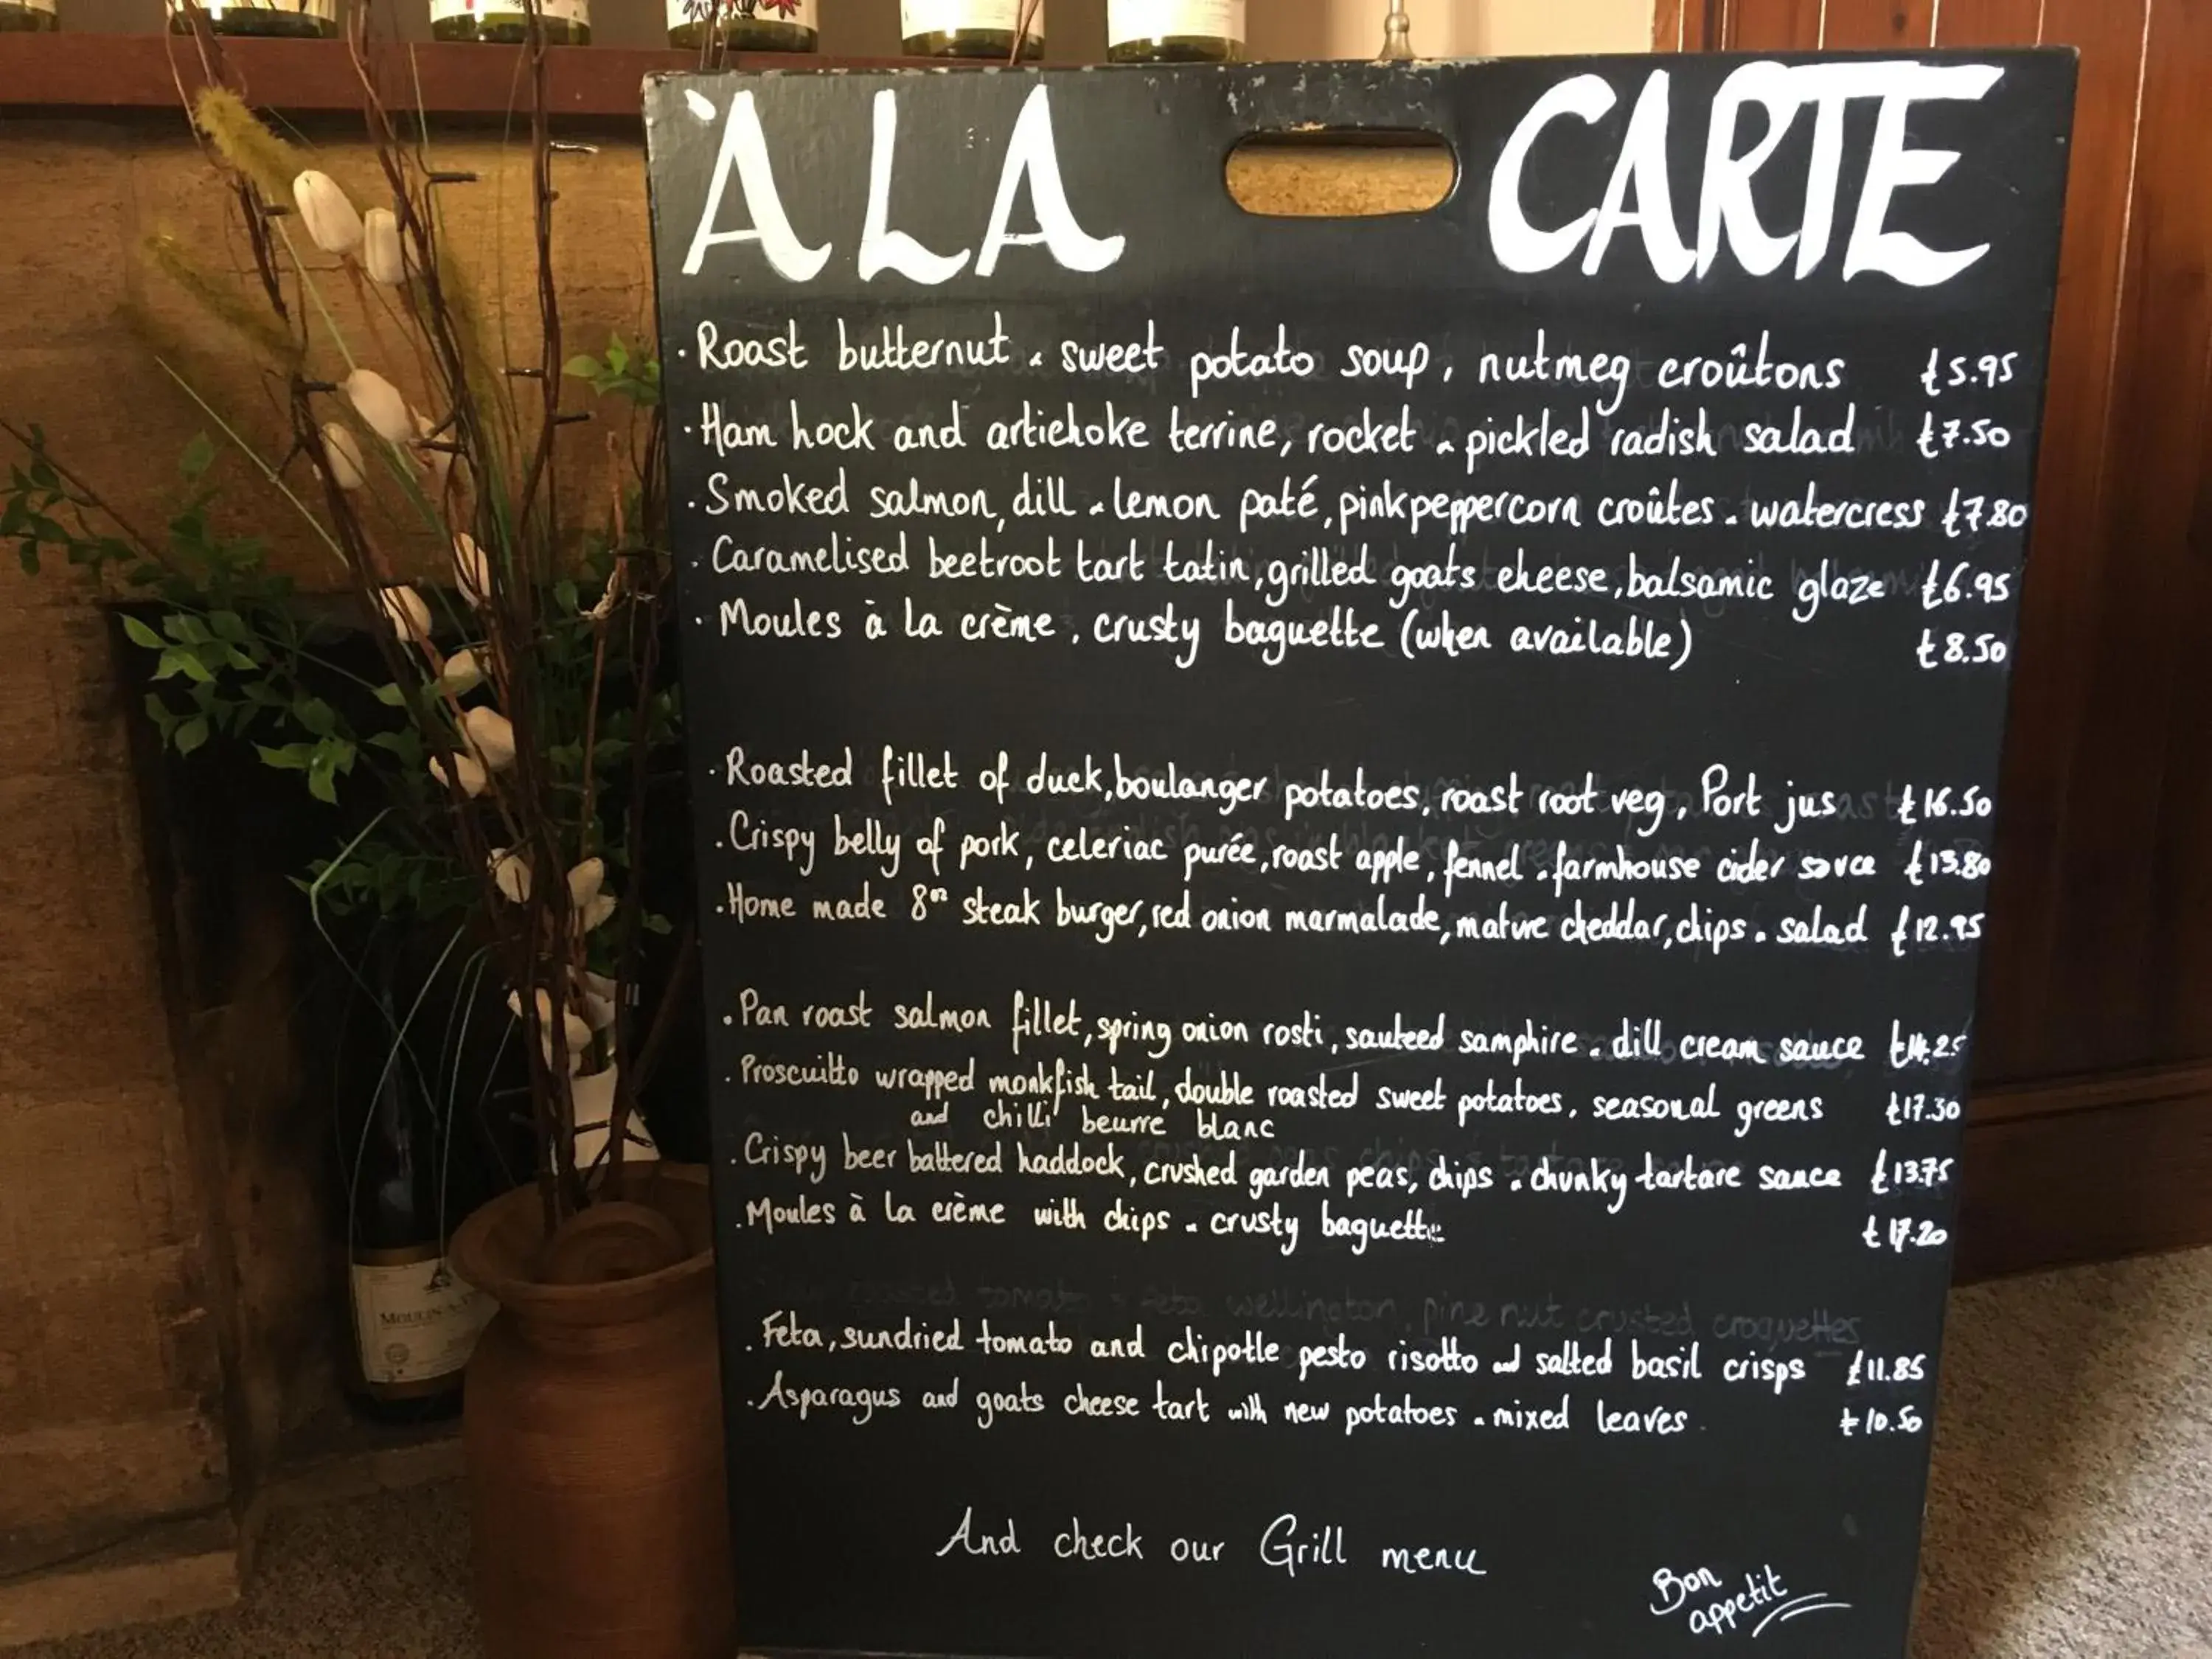 À LA CARTE
· Roast butternut & sweet potato soup, nutmeg croûtons £5.95
· Ham hock and artichoke terrine, rocket & pickled radish salad £7.50
· Smoked salmon, dill & lemon paté, pink peppercorn croûtes & watercress £7.80
· Caramelised beetroot tart tatin, grilled goats cheese, balsamic glaze £6.95
· Moules à la crème, crusty baguette (when available) £8.50
· Roasted fillet of duck, boulanger potatoes, roast root veg, Port jus £16.50
· Crispy belly of pork, celeriac purée, roast apple, fennel & farmhouse cider sauce £13.80
· Home made 8oz steak burger, red onion marmalade, mature cheddar, chips & salad £12.95
· Pan roast salmon fillet, spring onion rosti, sauteed samphire & dill cream sauce £14.25
· Proscuitto wrapped monkfish tail, double roasted sweet potatoes, seasonal greens £17.30
and chilli beurre blanc
· Crispy beer battered haddock, crushed garden peas, chips & chunky tartare sauce £13.75
· Moules à la crème with chips & crusty baguette £17.20
tomato & feta wellington, pine nut crusted croquettes
· Feta, sundried tomato and chipotle pesto risotto and salted basil crisps £11.85
· Asparagus and goats cheese tart with new potatoes & mixed leaves £10.50
And check our Grill menu
Bon
appetit
MOULIN